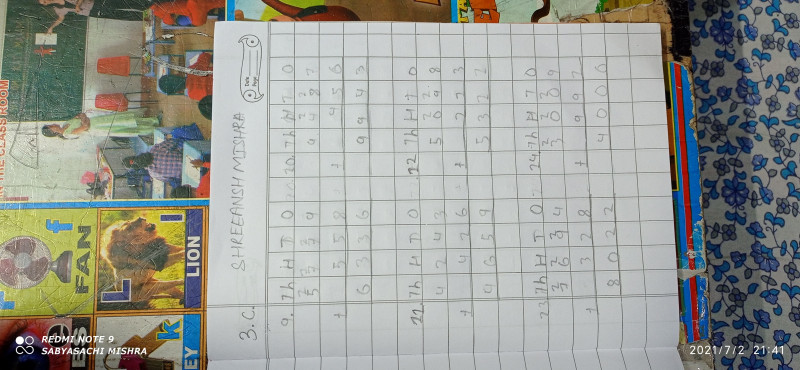 3. C. SHREEANSH MISHRA
9. Th H T O
+ 5 5 8
6 3 3 6
10. Th H T O
9 4 8 7
+ 4 5 6
9 9 4 3
11. Th H T O
4 2 4 3
+ 4 2 6
4 6 5 9
12. Th H T O
5 0 9 8
13. Th H T O
7 6 9 4
+ 3 2 8
8 0 2 2
14. Th H T O
3 0 0 9
+ 9 9 7
4 0 0 6
IN THE CLASS ROOM
f
FAN
L l
LION
k
KEY
REDMI NOTE 9
SABYASACHI MISHRA
2021/7/2 21:41